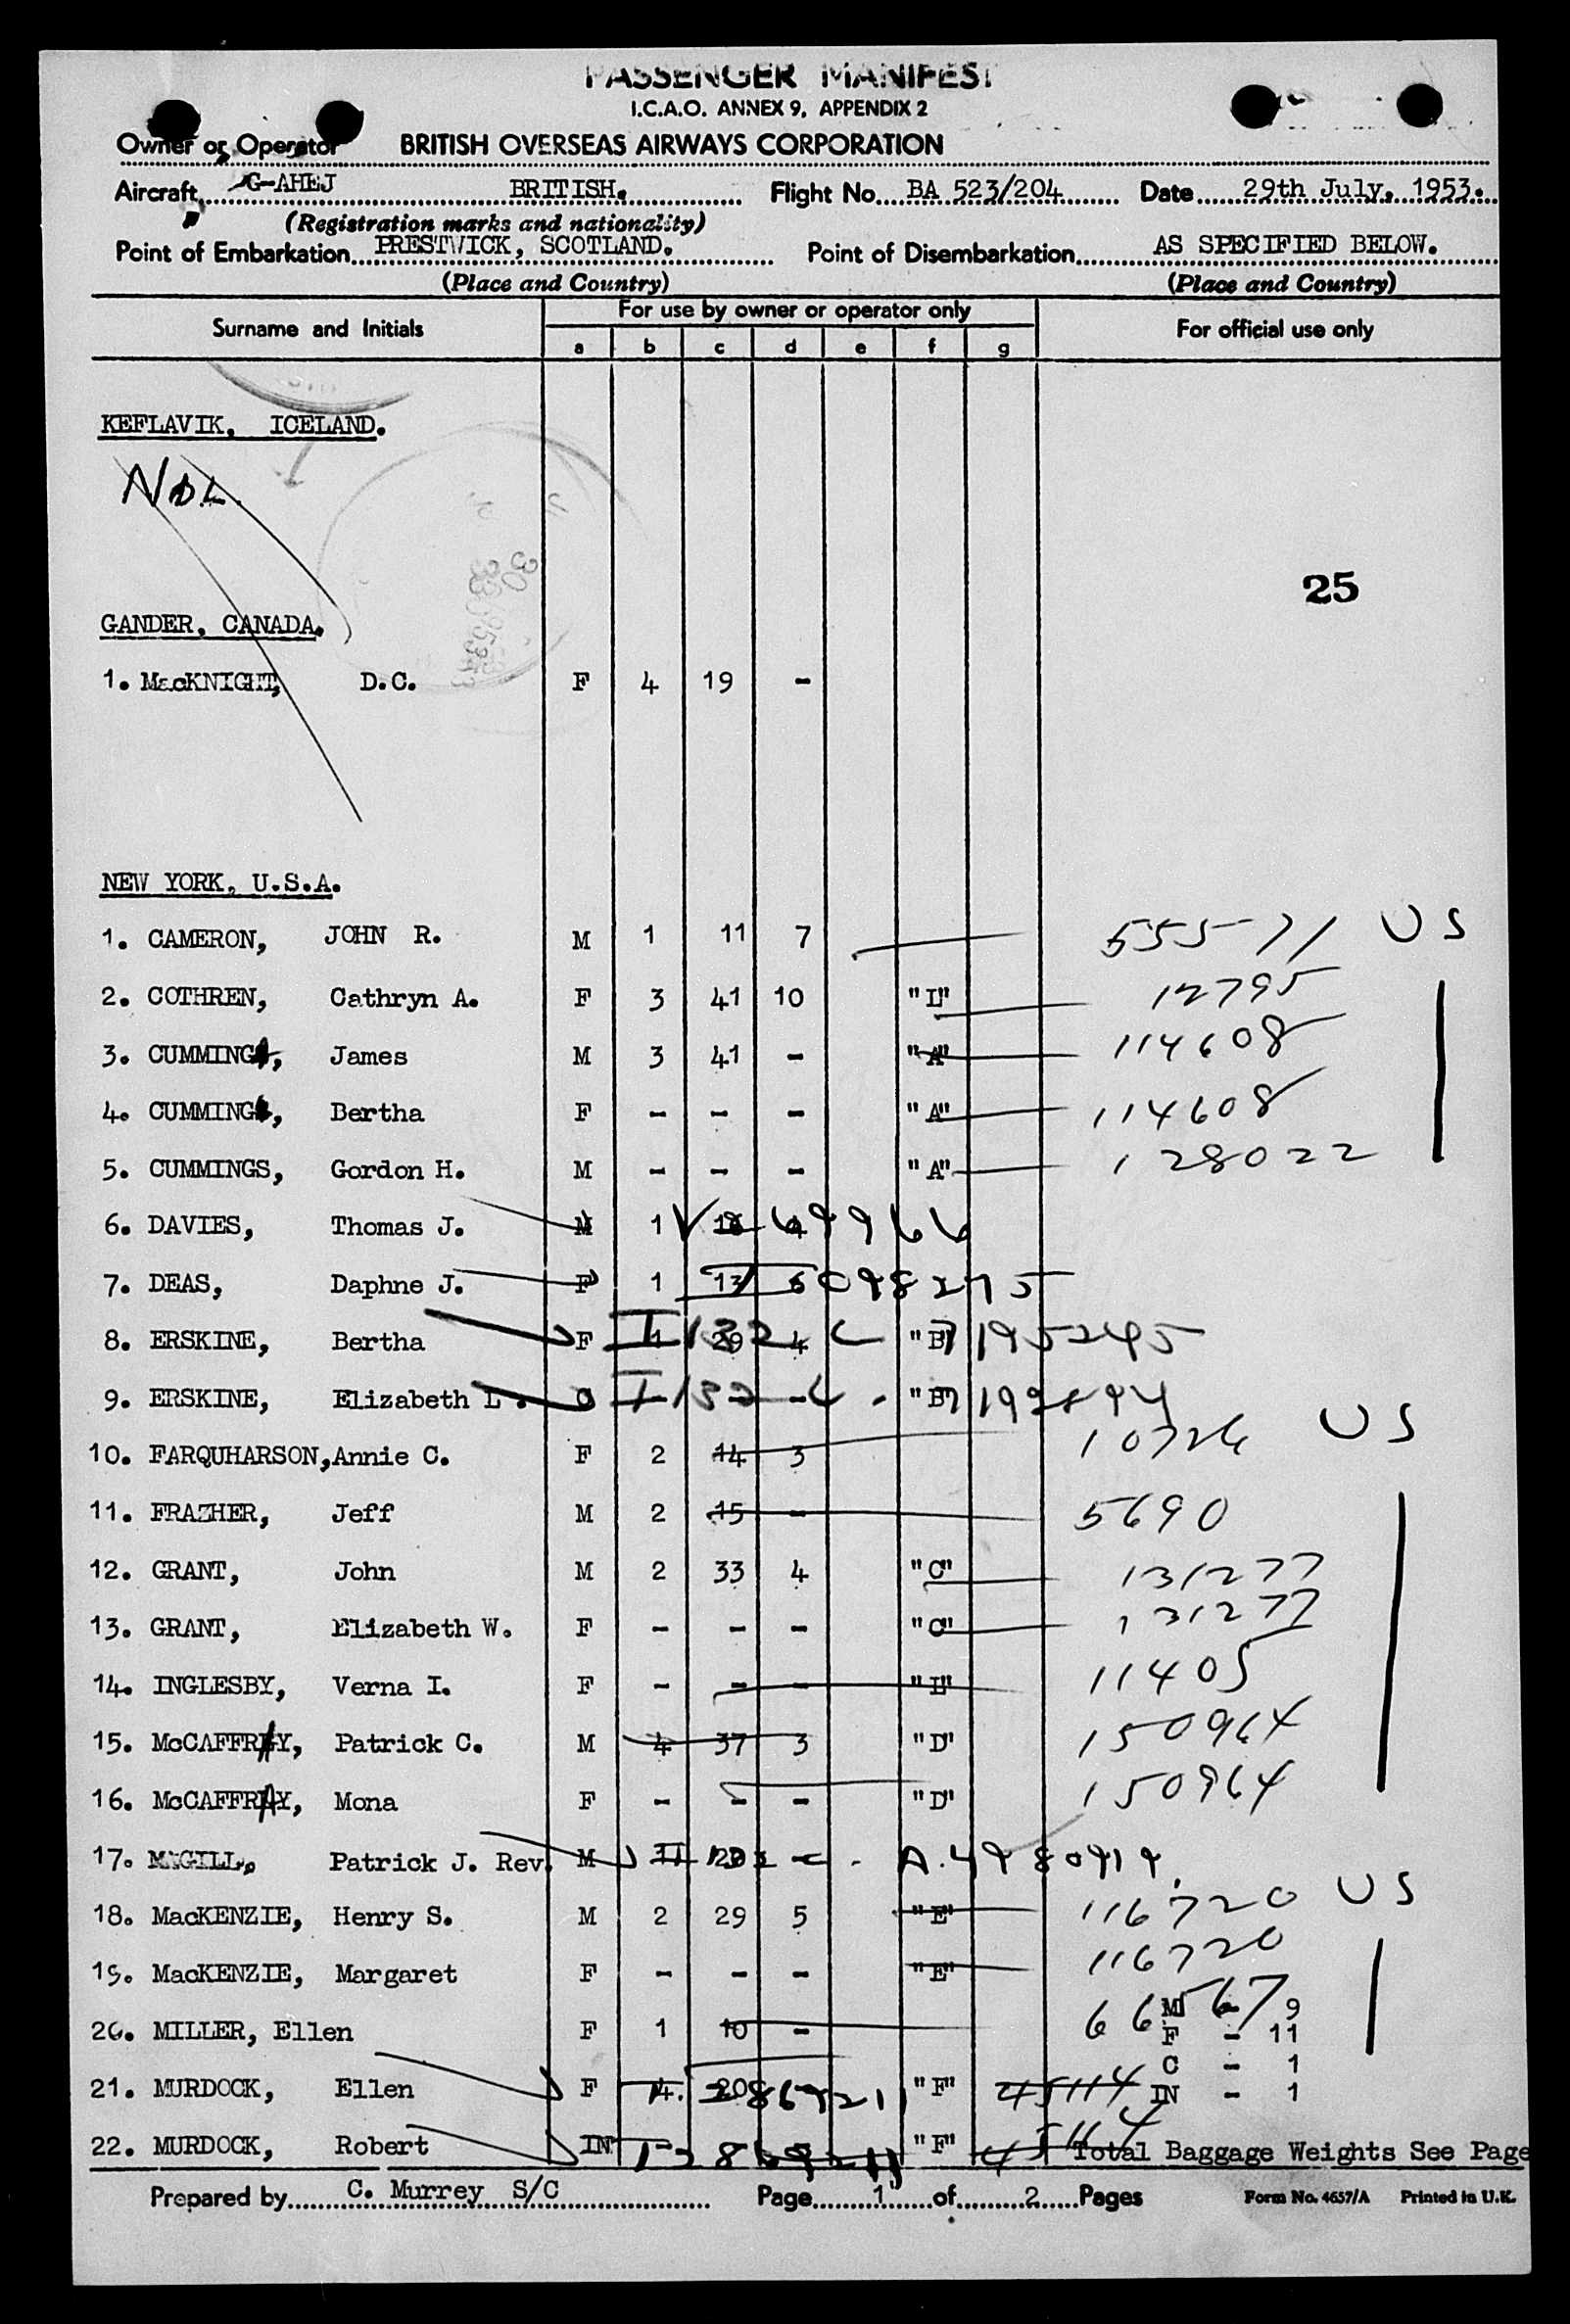 PASSENGER MANIFEST
I.C.A.O. ANNEX 9, APPENDIX 2
Owner or Operator BRITISH OVERSEAS AIRWAYS CORPORATION
Aircraft G-AHEJ BRITISH. Flight No. BA 523/204 Date 29th July. 1953.
(Registration marks and nationality)
Point of Embarkation PRESTWICK, SCOTLAND. Point of Disembarkation AS SPECIFIED BELOW.
(Place and Country) (Place and Country)
Surname and Initials For use by owner or operator only For official use only
a b c d e f g
KEFLAVIK, ICELAND.
25
GANDER, CANADA.
1. MacKNIGHT, D.C. F 4 19 -
NEW YORK, U.S.A.
1. CAMERON, JOHN R. M 1 11 7 US
2. COTHREN, Cathryn A. F 3 41 10 "L" 12795
3. CUMMING, James M 3 41 - "A" 114608
4. CUMMING, Bertha F - - - "A" 114608
5. CUMMINGS, Gordon H. M - - - "A" 128022
6. DAVIES, Thomas J. M 1 18 4
7. DEAS, Daphne J. F 1 13 6
8. ERSKINE, Bertha F 1 29 4 "B" 7195245
9. ERSKINE, Elizabeth L. C - - - "B"
10. FARQUHARSON, Annie C. F 2 14 3 10726 US
11. FRAZHER, Jeff M 2 15 - 5690
12. GRANT, John M 2 33 4 "C" 131277
13. GRANT, Elizabeth W. F - - - "C" 131277
14. INGLESBY, Verna I. F - - - "L" 11405
15. McCAFFRAY, Patrick C. M 4 37 3 "D" 150964
16. McCAFFRAY, Mona F - - - "D" 150964
17. McGILL, Patrick J. Rev. M 20 - A.4980919
18. MacKENZIE, Henry S. M 2 29 5 "E" 116720 US
19. MacKENZIE, Margaret F - - - "E" 116720
M - 9
20. MILLER, Ellen F 1 10 - 66567
F - 11
C - 1
21. MURDOCK, Ellen F 4 20 "F" 45114
IN - 1
22. MURDOCK, Robert IN - "F" 45114
Total Baggage Weights See Page
Prepared by C. Murrey S/C Page 1 of 2 Pages Form No. 4657/A Printed in U.K.